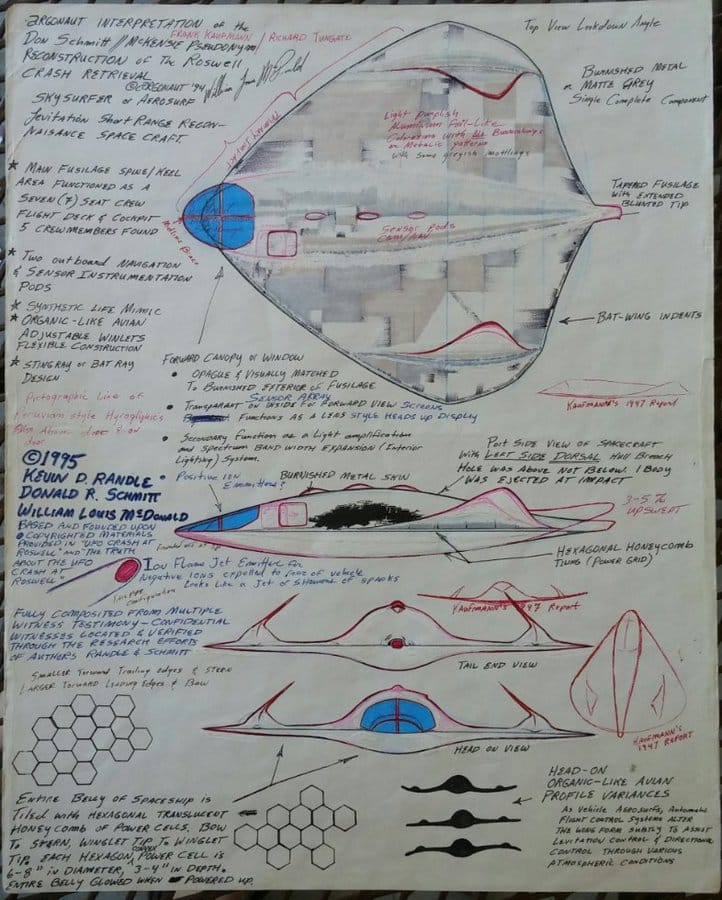 ARGONAUT INTERPRETATION of the
FRANK KAUFMANN / RICHARD TUNGATE
DON SCHMITT // McKENSIE PSEUDONYM/
RECONSTRUCTION OF THE ROSWELL
CRASH RETRIEVAL
©ARGONAUT '94
SKYSURFER or AEROSURF
Levitation Short RANGE RECON-
NAISANCE SPACE CRAFT.
★ MAIN FUSILAGE SPINE/KEEL
AREA FUNCTIONED AS A
SEVEN (7) SEAT CREW
FLIGHT DECK & COCKPIT
5 CREWMEMBERS FOUND
★ TWO OUTBOARD NAVIGATION
& SENSOR INSTRUMENTATION
PODS
★ SYNTHETIC LIFE MIMIC
★ ORGANIC-LIKE AVIAN
ADJUSTABLE WINLETS
FLEXIBLE CONSTRUCTION
★ STINGRAY or BAT RAY
DESIGN
Pictographic Line of
Peruvian style Hyroglyphics
door
Top View Lookdown Angle
BURNISHED METAL
or MATTE GREY
Single Complete Component
Light Purplish
Aluminum Foil-Like
Coloration with
or Metalic patterns
with some greyish mottlings
TAPERED FUSILAGE
WITH EXTENDED
BLUNTED TIP
SENSOR PODS
BAT-WING INDENTS
KAUFMANN'S 1947 REPORT
FORWARD CANOPY or WINDOW
• OPAQUE & VISUALLY MATCHED
TO BURNISHED EXTERIOR OF FUSILAGE
SENSOR ARRAY
• TRANSPARANT ON INSIDE FOR FORWARD VIEW SCREENS
FUNCTIONS AS A LEAS STYLE HEADS UP DISPLAY
• SECONDARY FUNCTION as a LIGHT amplification
and SPECTRUM BAND WIDTH EXPANSION (INTERIOR
LIGHTING) SYSTEM.
• Positive ION
Emmitions?
BURNISHED METAL SKIN
PORT SIDE VIEW OF SPACECRAFT
WITH LEFT SIDE DORSAL Hull Breach
HOLE WAS ABOVE NOT BELOW. 1 BODY
WAS EJECTED AT IMPACT
UPSWEPT
HEXAGONAL HONEYCOMB
TILING (POWER GRID)
©1995
KEVIN D. RANDLE
DONALD R. SCHMITT
WILLIAM LOUIS McDONALD
BASED AND FOUNDED UPON
COPYRIGHTED MATERIALS
PROVIDED IN "UFO CRASH AT
ROSWELL" AND "THE TRUTH
ABOUT THE UFO
CRASH AT
ROSWELL"
ION FLAME JET EMITTER FOR
Negative IONS expelled to fore of vehicle
Looks Like a Jet of Stream of sparks
configuration
FULLY COMPOSITED FROM MULTIPLE
WITNESS TESTIMONY - CONFIDENTIAL
WITNESSES LOCATED & VERIFIED
THROUGH THE RESEARCH EFFORTS
OF AUTHORS RANDLE & SCHMITT
KAUFMANN'S 1947 REPORT
TAIL END VIEW
SMALLER Toward Trailing edges & STERN
LARGER Forward Leading Edges & BOW
HEAD ON VIEW
KAUFMANN'S
1947 REPORT
ENTIRE BELLY OF SPACESHIP IS
TILED WITH HEXAGONAL TRANSLUCENT
HONEYCOMB OF POWER CELLS. BOW
TO STERN, WINGLET TIP TO WINGLET
TIP. EACH HEXAGON, POWER CELL IS
6-8" IN DIAMETER, 3-4" IN DEPTH.
ENTIRE BELLY GLOWED WHEN POWERED UP.
HEAD-ON
ORGANIC-LIKE AVIAN
PROFILE VARIANCES
As Vehicle AEROSURFS, Automatic
FLIGHT CONTROL SYSTEMS ALTER
THE WING FORM SUBTLY TO ASSIST
LEVITATION CONTROL & DIRECTIONAL
CONTROL THROUGH VARIOUS
ATMOSPHERIC CONDITIONS